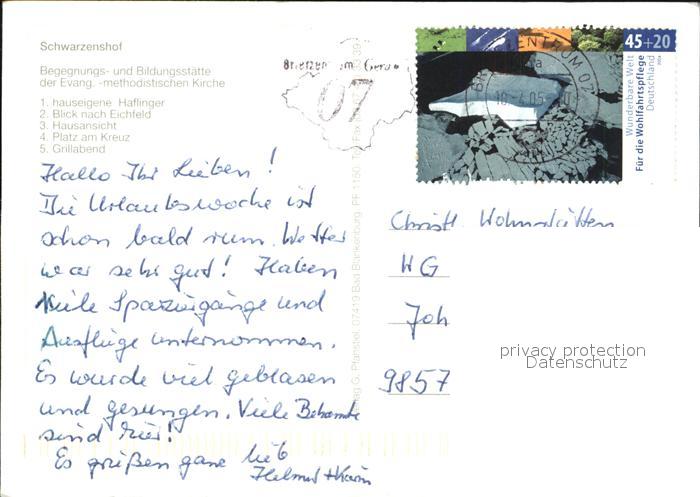 Schwarzenshof
Begegnungs- und Bildungsstätte
der Evang. -methodistischen Kirche
1. hauseigene Haflinger
2. Blick nach Eichfeld
3. Hausansicht
4. Platz am Kreuz
5. Grillabend
Hallo Ihr Lieben!
Die Urlaubswoche ist
schon bald rum. Wetter
war sehr gut! Haben
viele Spaziergänge und
Ausflüge unternommen.
Es wurde viel geblasen
und gesungen. Viele Bekannte
sind hier!
Es grüßen ganz lieb
Helmut + Karin
07
45+20
Wunderbare Welt
Für die Wohlfahrtspflege
Deutschland
BRIEFZENTRUM 07
G. Pfanstiel, 07419 Bad Blankenburg, PF 1150, Tel
Christl. Wohnstätten
WG
Joh
9857
privacy protection
Datenschutz